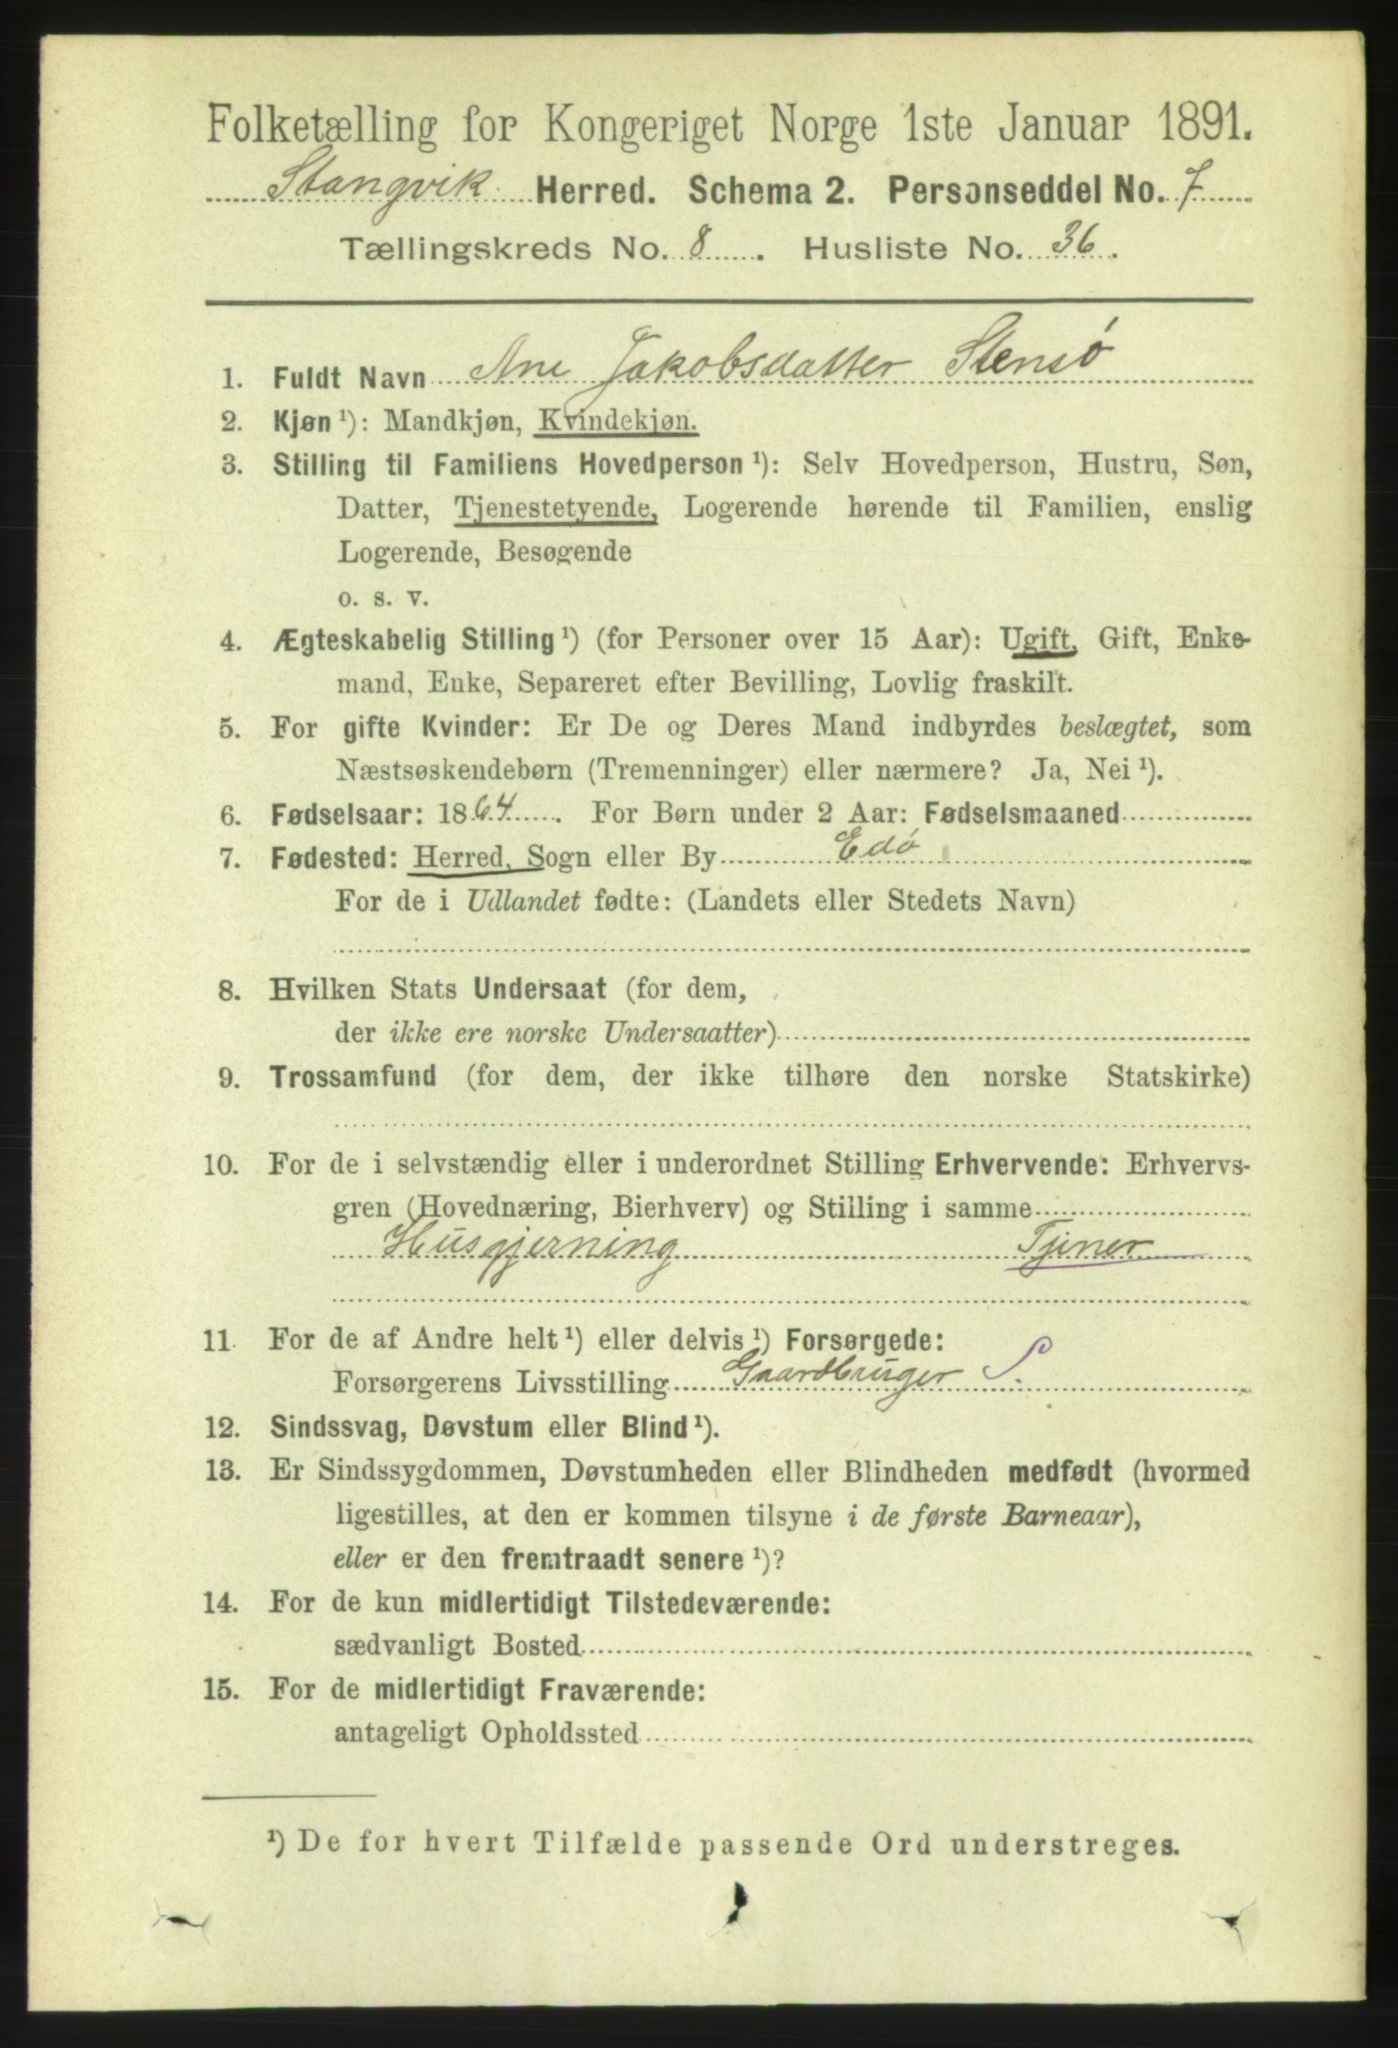 Folketælling for Kongeriget Norge 1ste Januar 1891.
Stangvik Herred. Schema 2. Personseddel No. 7
Tællingskreds No. 8. Husliste No. 36.
1. Fuldt Navn Ane Jakobsdatter Stensø
2. Kjøn ¹): Mandkjøn, Kvindekjøn.
3. Stilling til Familiens Hovedperson ¹): Selv Hovedperson, Hustru, Søn,
Datter, Tjenestetyende, Logerende hørende til Familien, enslig
Logerende, Besøgende
o. s. v.
4. Ægteskabelig Stilling ¹) (for Personer over 15 Aar): Ugift, Gift, Enke-
mand, Enke, Separeret efter Bevilling, Lovlig fraskilt.
5. For gifte Kvinder: Er De og Deres Mand indbyrdes beslægtet, som
Næstsøskendebørn (Tremenninger) eller nærmere? Ja, Nei ¹).
6. Fødselsaar: 1864. For Børn under 2 Aar: Fødselsmaaned
7. Fødested: Herred, Sogn eller By Edø
For de i Udlandet fødte: (Landets eller Stedets Navn)
8. Hvilken Stats Undersaat (for dem,
der ikke ere norske Undersaatter)
9. Trossamfund (for dem, der ikke tilhøre den norske Statskirke)
10. For de i selvstændig eller i underordnet Stilling Erhvervende: Erhvervs-
gren (Hovednæring, Bierhverv) og Stilling i samme
Husgjerning Tjener
11. For de af Andre helt ¹) eller delvis ¹) Forsørgede:
Forsørgerens Livsstilling Gaardbruger S.
12. Sindssvag, Døvstum eller Blind ¹).
13. Er Sindssygdommen, Døvstumheden eller Blindheden medfødt (hvormed
ligestilles, at den er kommen tilsyne i de første Barneaar),
eller er den fremtraadt senere ¹)?
14. For de kun midlertidigt Tilstedeværende:
sædvanligt Bosted
15. For de midlertidigt Fraværende:
antageligt Opholdssted
¹) De for hvert Tilfælde passende Ord understreges.